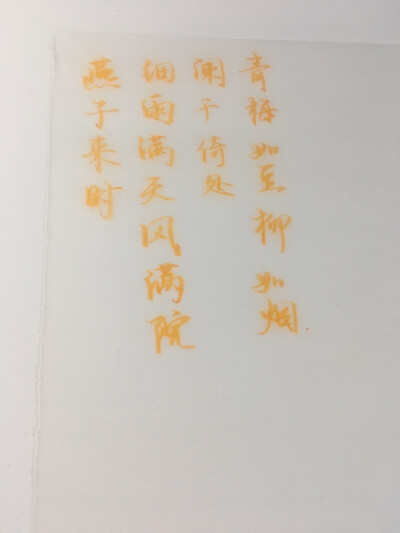 青梅如豆柳如烟.
阑干倚处
细雨满天风满院
燕子来时